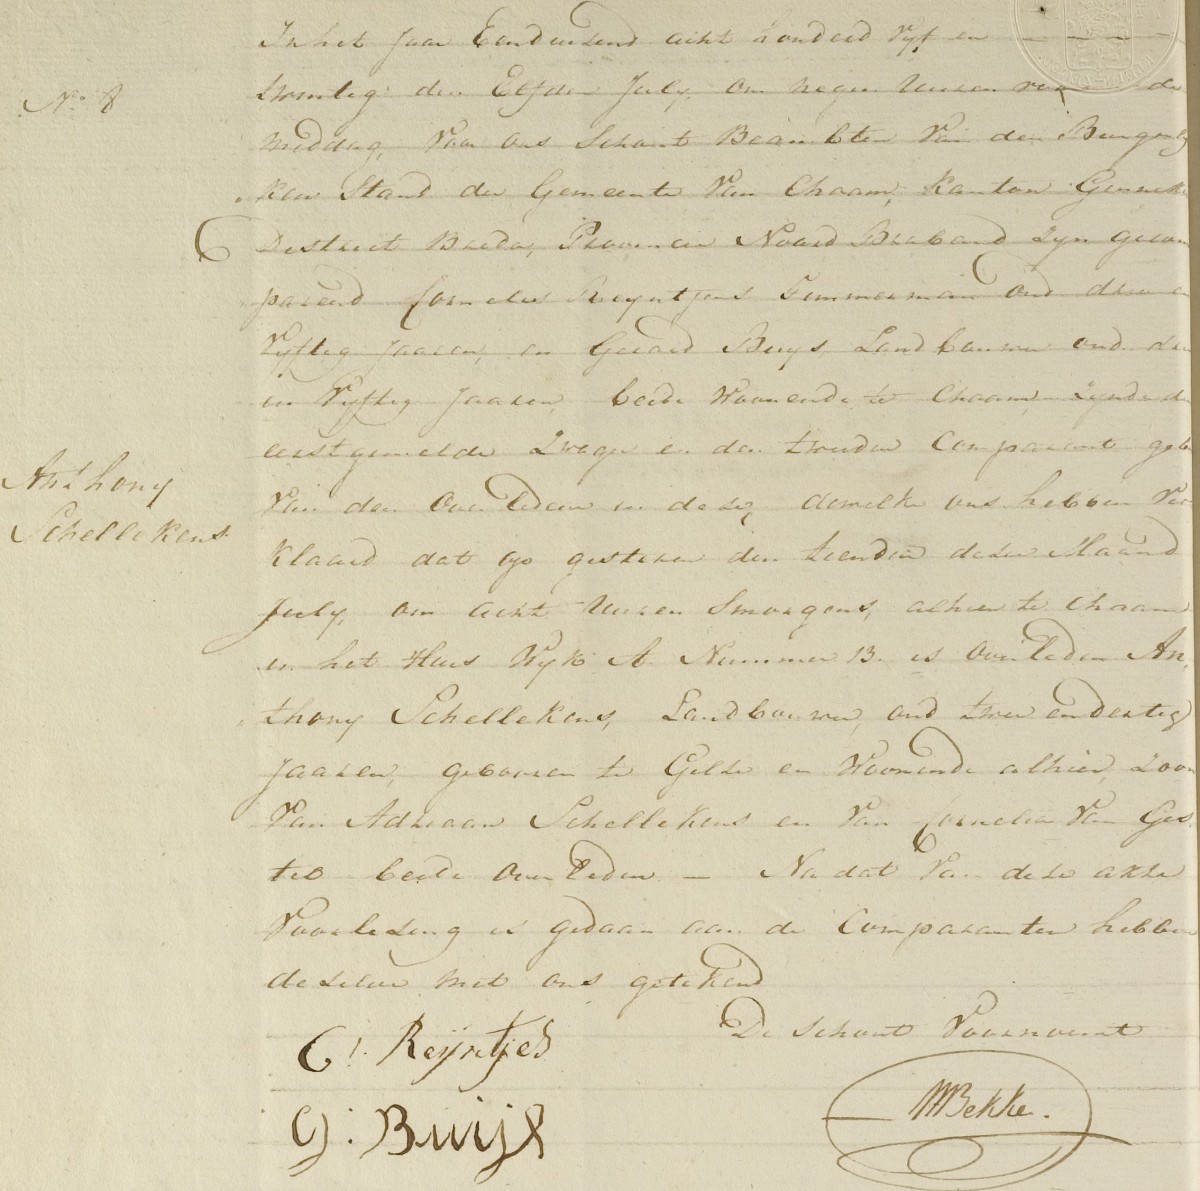 In het Jaar Eenduizend acht honderd vyf en
twintig den Elfden July, om negen Uuren voor de
middag, Voor ons Schout Beambten Van den Burgerly
N.o 8
ken Stand der Gemeente Van Chaam, Kanton Ginneken
District Breda, Provincie Noord Braband zyn gecom
pareerd Cornelis Reyntjens Timmerman oud drie en
Vyftig Jaaren, en Gerard Buys, Landbouwer oud drie
en Vyftig Jaaren, beide Woonende te Chaam, zynde de
eerstgemelde Zwager en den tweeden Comparant geb
Anthony
Schellekens
Van den Overleden in deze, dewelke ons hebben Ver
klaard dat op gisteren den tienden dezer Maand
July, om acht Uuren Smorgens, alhier te Chaam
in het Huis Wyk A Nummer 13. is Overleden An
thony Schellekens, Landbouwer, oud twee en dertig
Jaaren, gebooren te Gilze en Woonende alhier, Zoon
Van Adriaan Schellekens en Van Cornelia Van Ges
tel beide Overleden — Na dat Van deze akte
Voorlezing is gedaan aan de Comparanten hebben
dezelve met ons getekend
De Schout Voornoemt
C: Reijntjes
G: Buijs
MBekke.